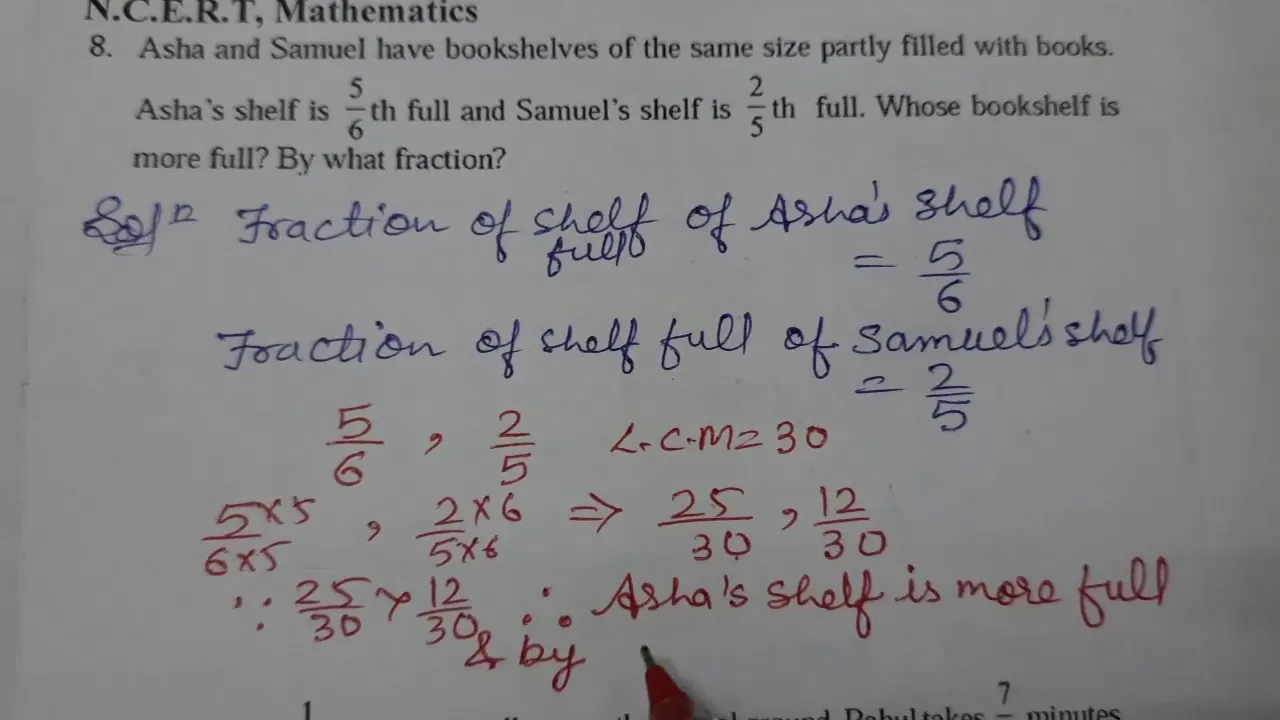 N.C.E.R.T, Mathematics
8. Asha and Samuel have bookshelves of the same size partly filled with books.
Asha's shelf is 5/6 th full and Samuel's shelf is 2/5 th full. Whose bookshelf is
more full? By what fraction?
Solⁿ Fraction of shelf full of Asha's shelf
= 5/6
Fraction of shelf full of Samuel's shelf
= 2/5
5/6 , 2/5 L.C.M = 30
5×5/6×5 , 2×6/5×6 ⇒ 25/30 , 12/30
∵ 25/30 > 12/30 ∴ Asha's shelf is more full
& by
1 7 minutes